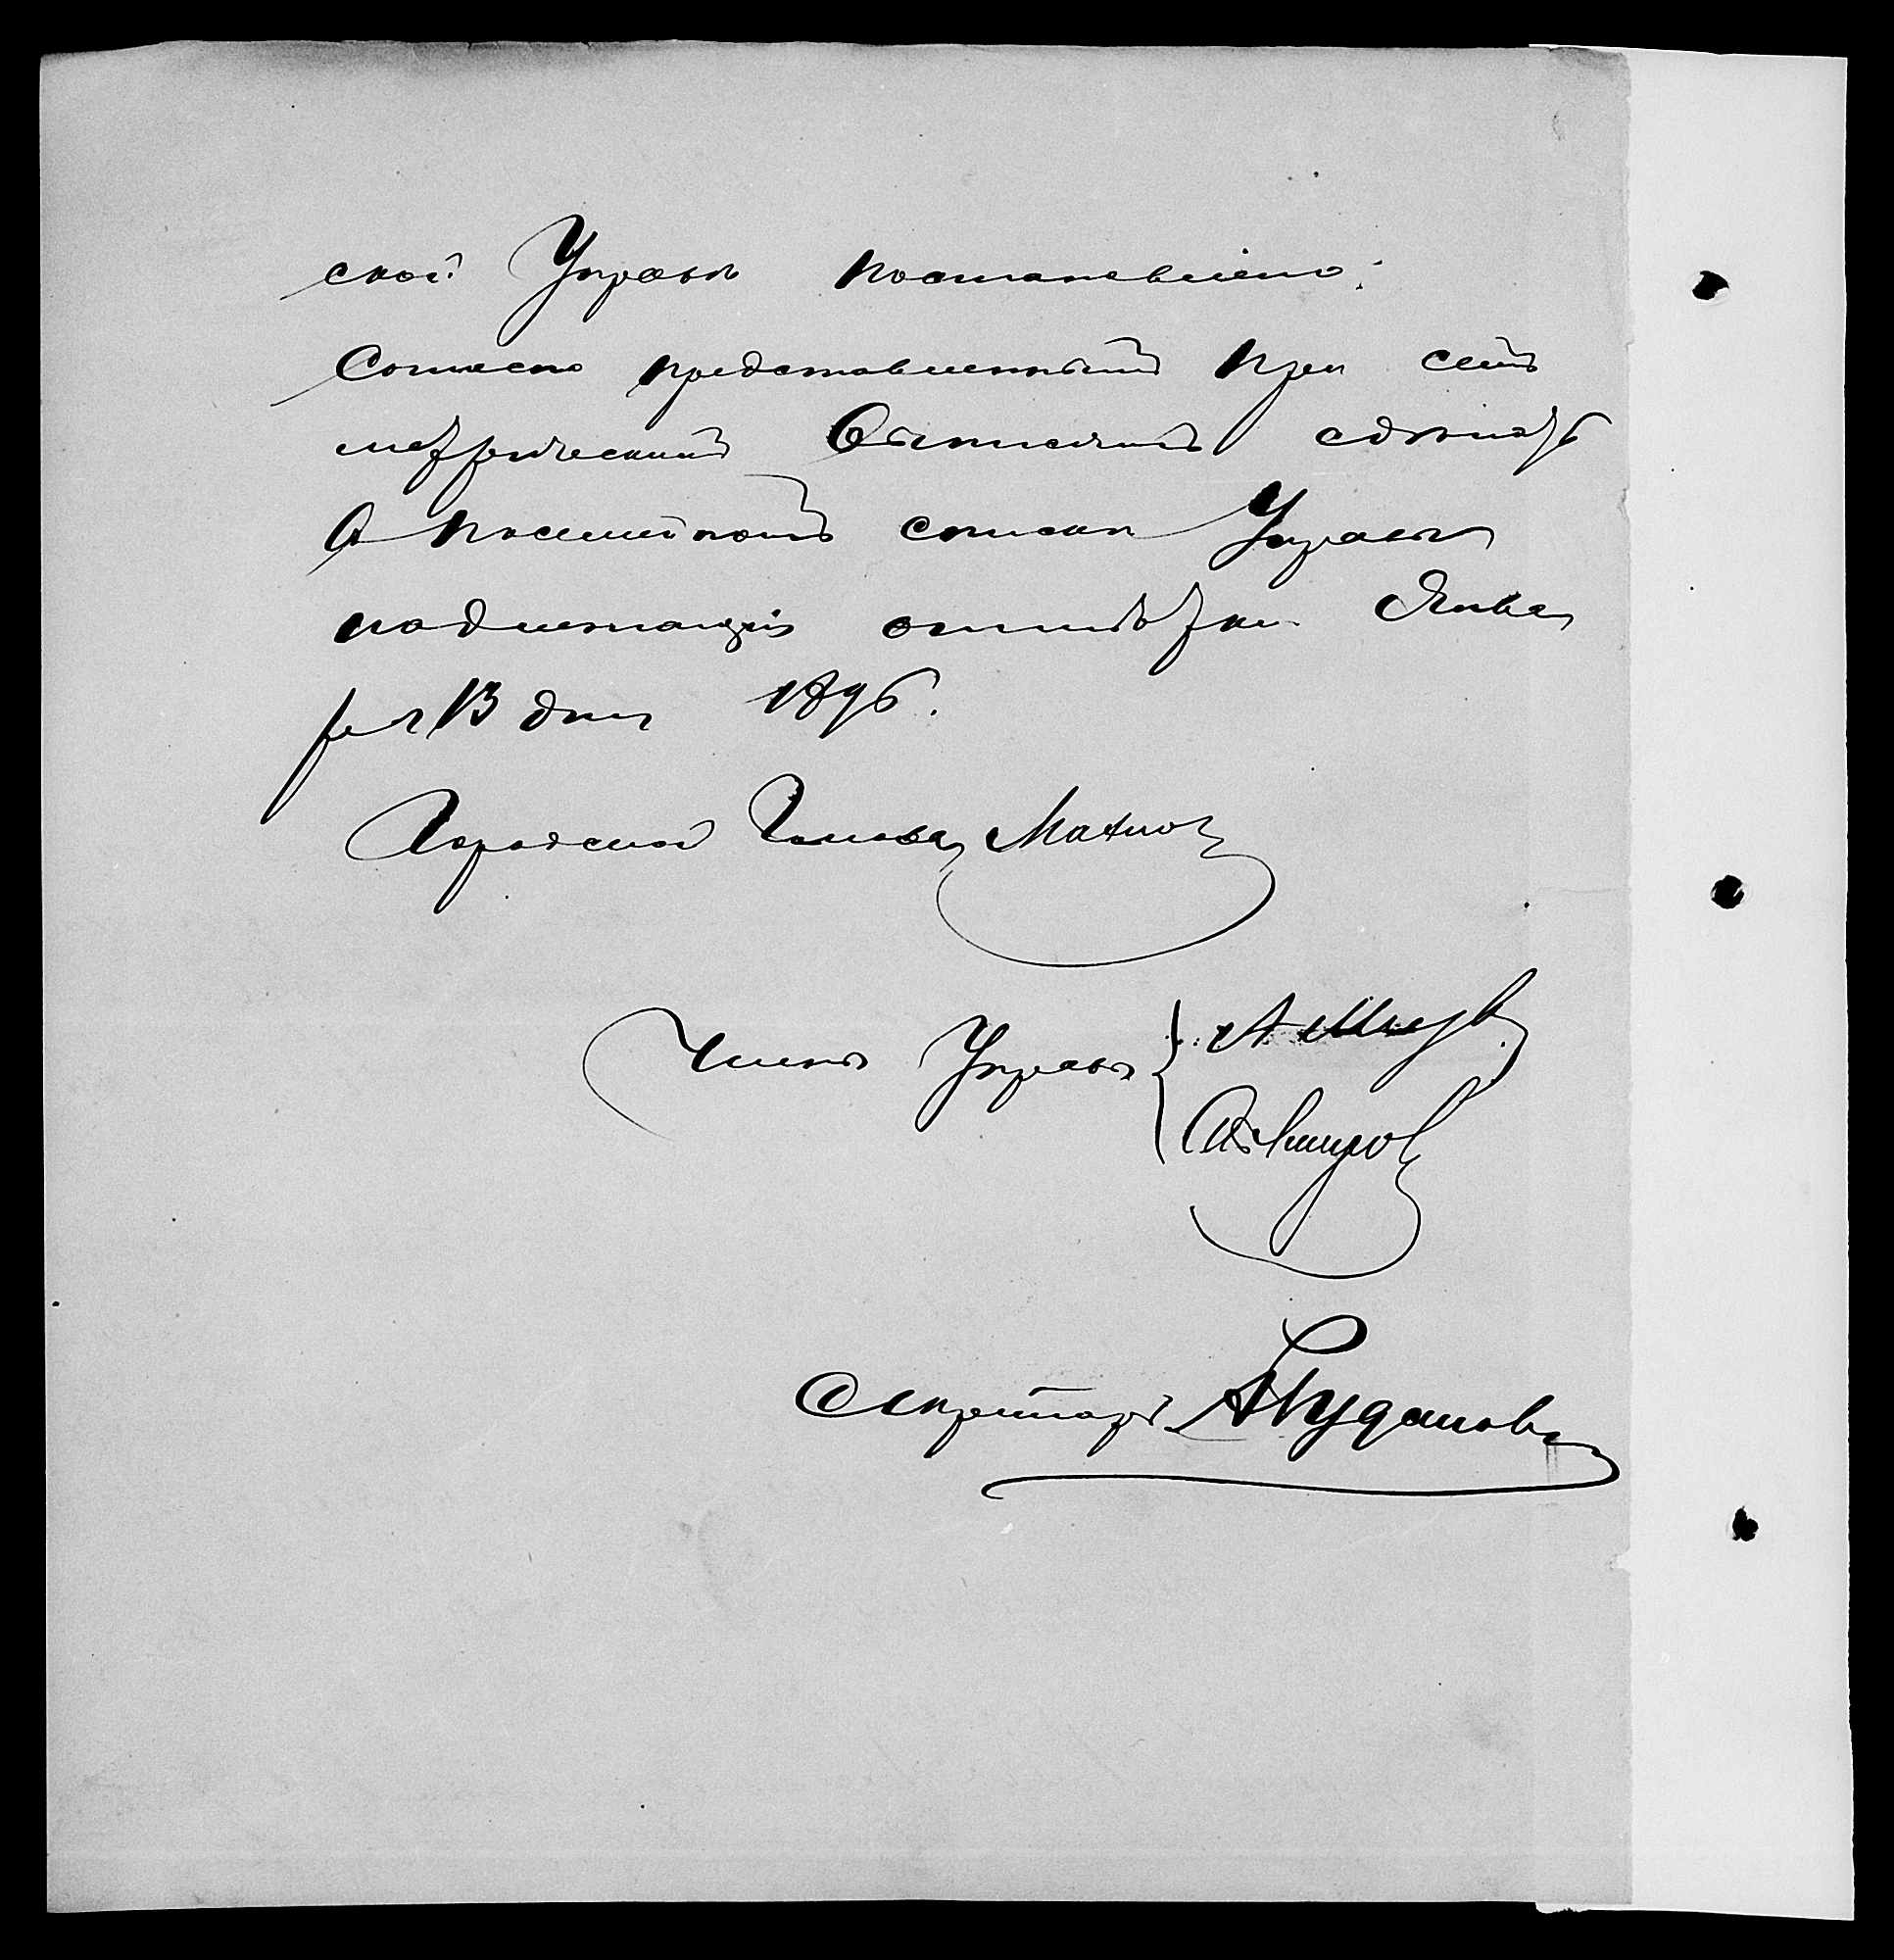 ской Управы постановлено:
Согласно представленнымъ при семъ
метрическимъ выписямъ сдѣлать
въ посемейномъ списки Управы
надлежащія отмѣтки. Янва
ря 13 дня 1896.
Городской Голова
Члены Управы
Секретарь